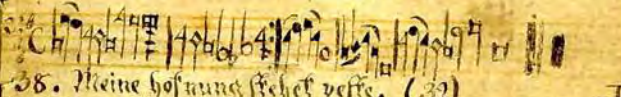 38. Meine hofnung stehet veste. (39)